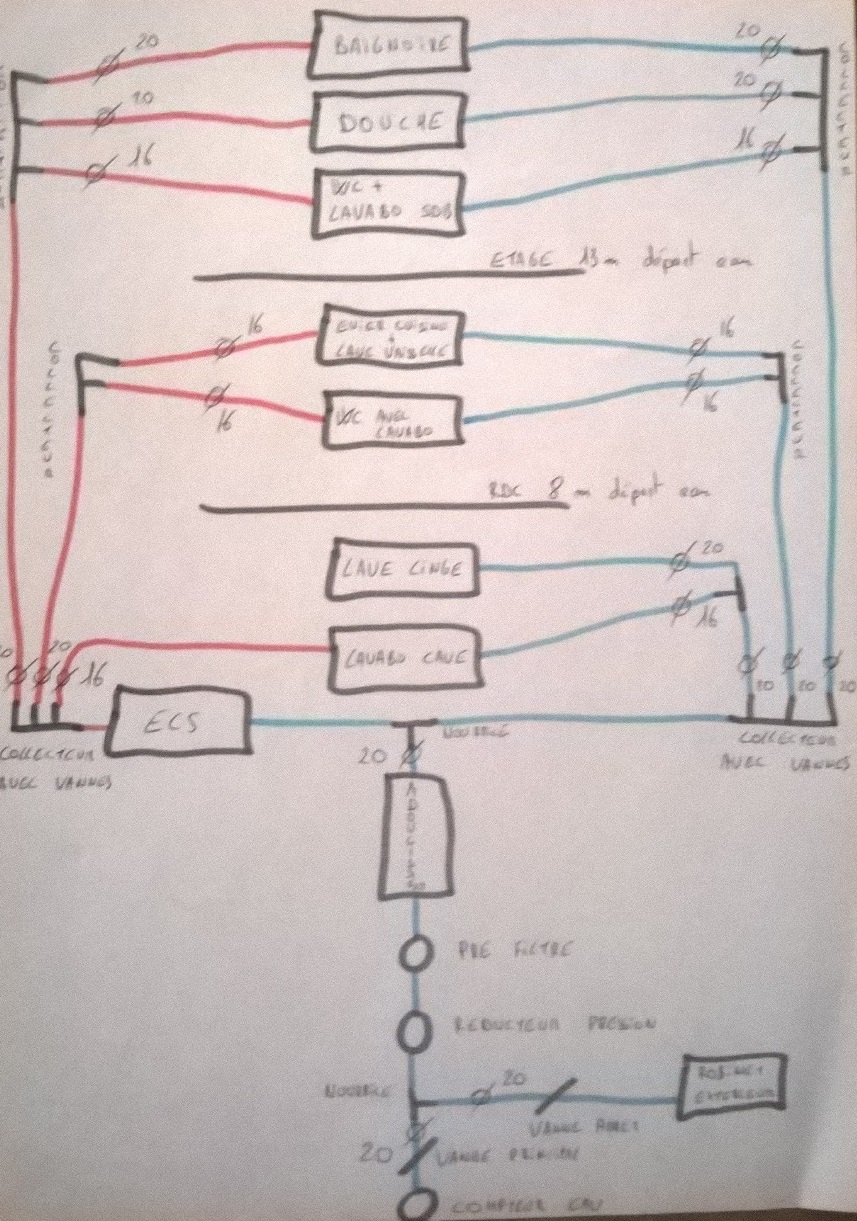 20 BAIGNOIRE 20
20 DOUCHE 20
16 W/C + 16
LAVABO SDB
ETAGE 13 m départ eau
16 EVIER CUISINE 16
+
LAVE VAISSELLE
16 W/C AVEC 16
LAVABO
COLLECTEUR
COLLECTEUR
RDC 8 m départ eau
LAVE LINGE 20
16
LAVABO CAVE
20 20 16
20 20 20
ECS
NOURRICE
COLLECTEUR
AVEC VANNES
COLLECTEUR
AVEC VANNES
20
ADOUCISSEUR
PRE FILTRE
REDUCTEUR PRESSION
NOURRICE
20
ROBINET
EXTERIEUR
VANNE ARRET
20 VANNE PRINCIPALE
COMPTEUR EAU